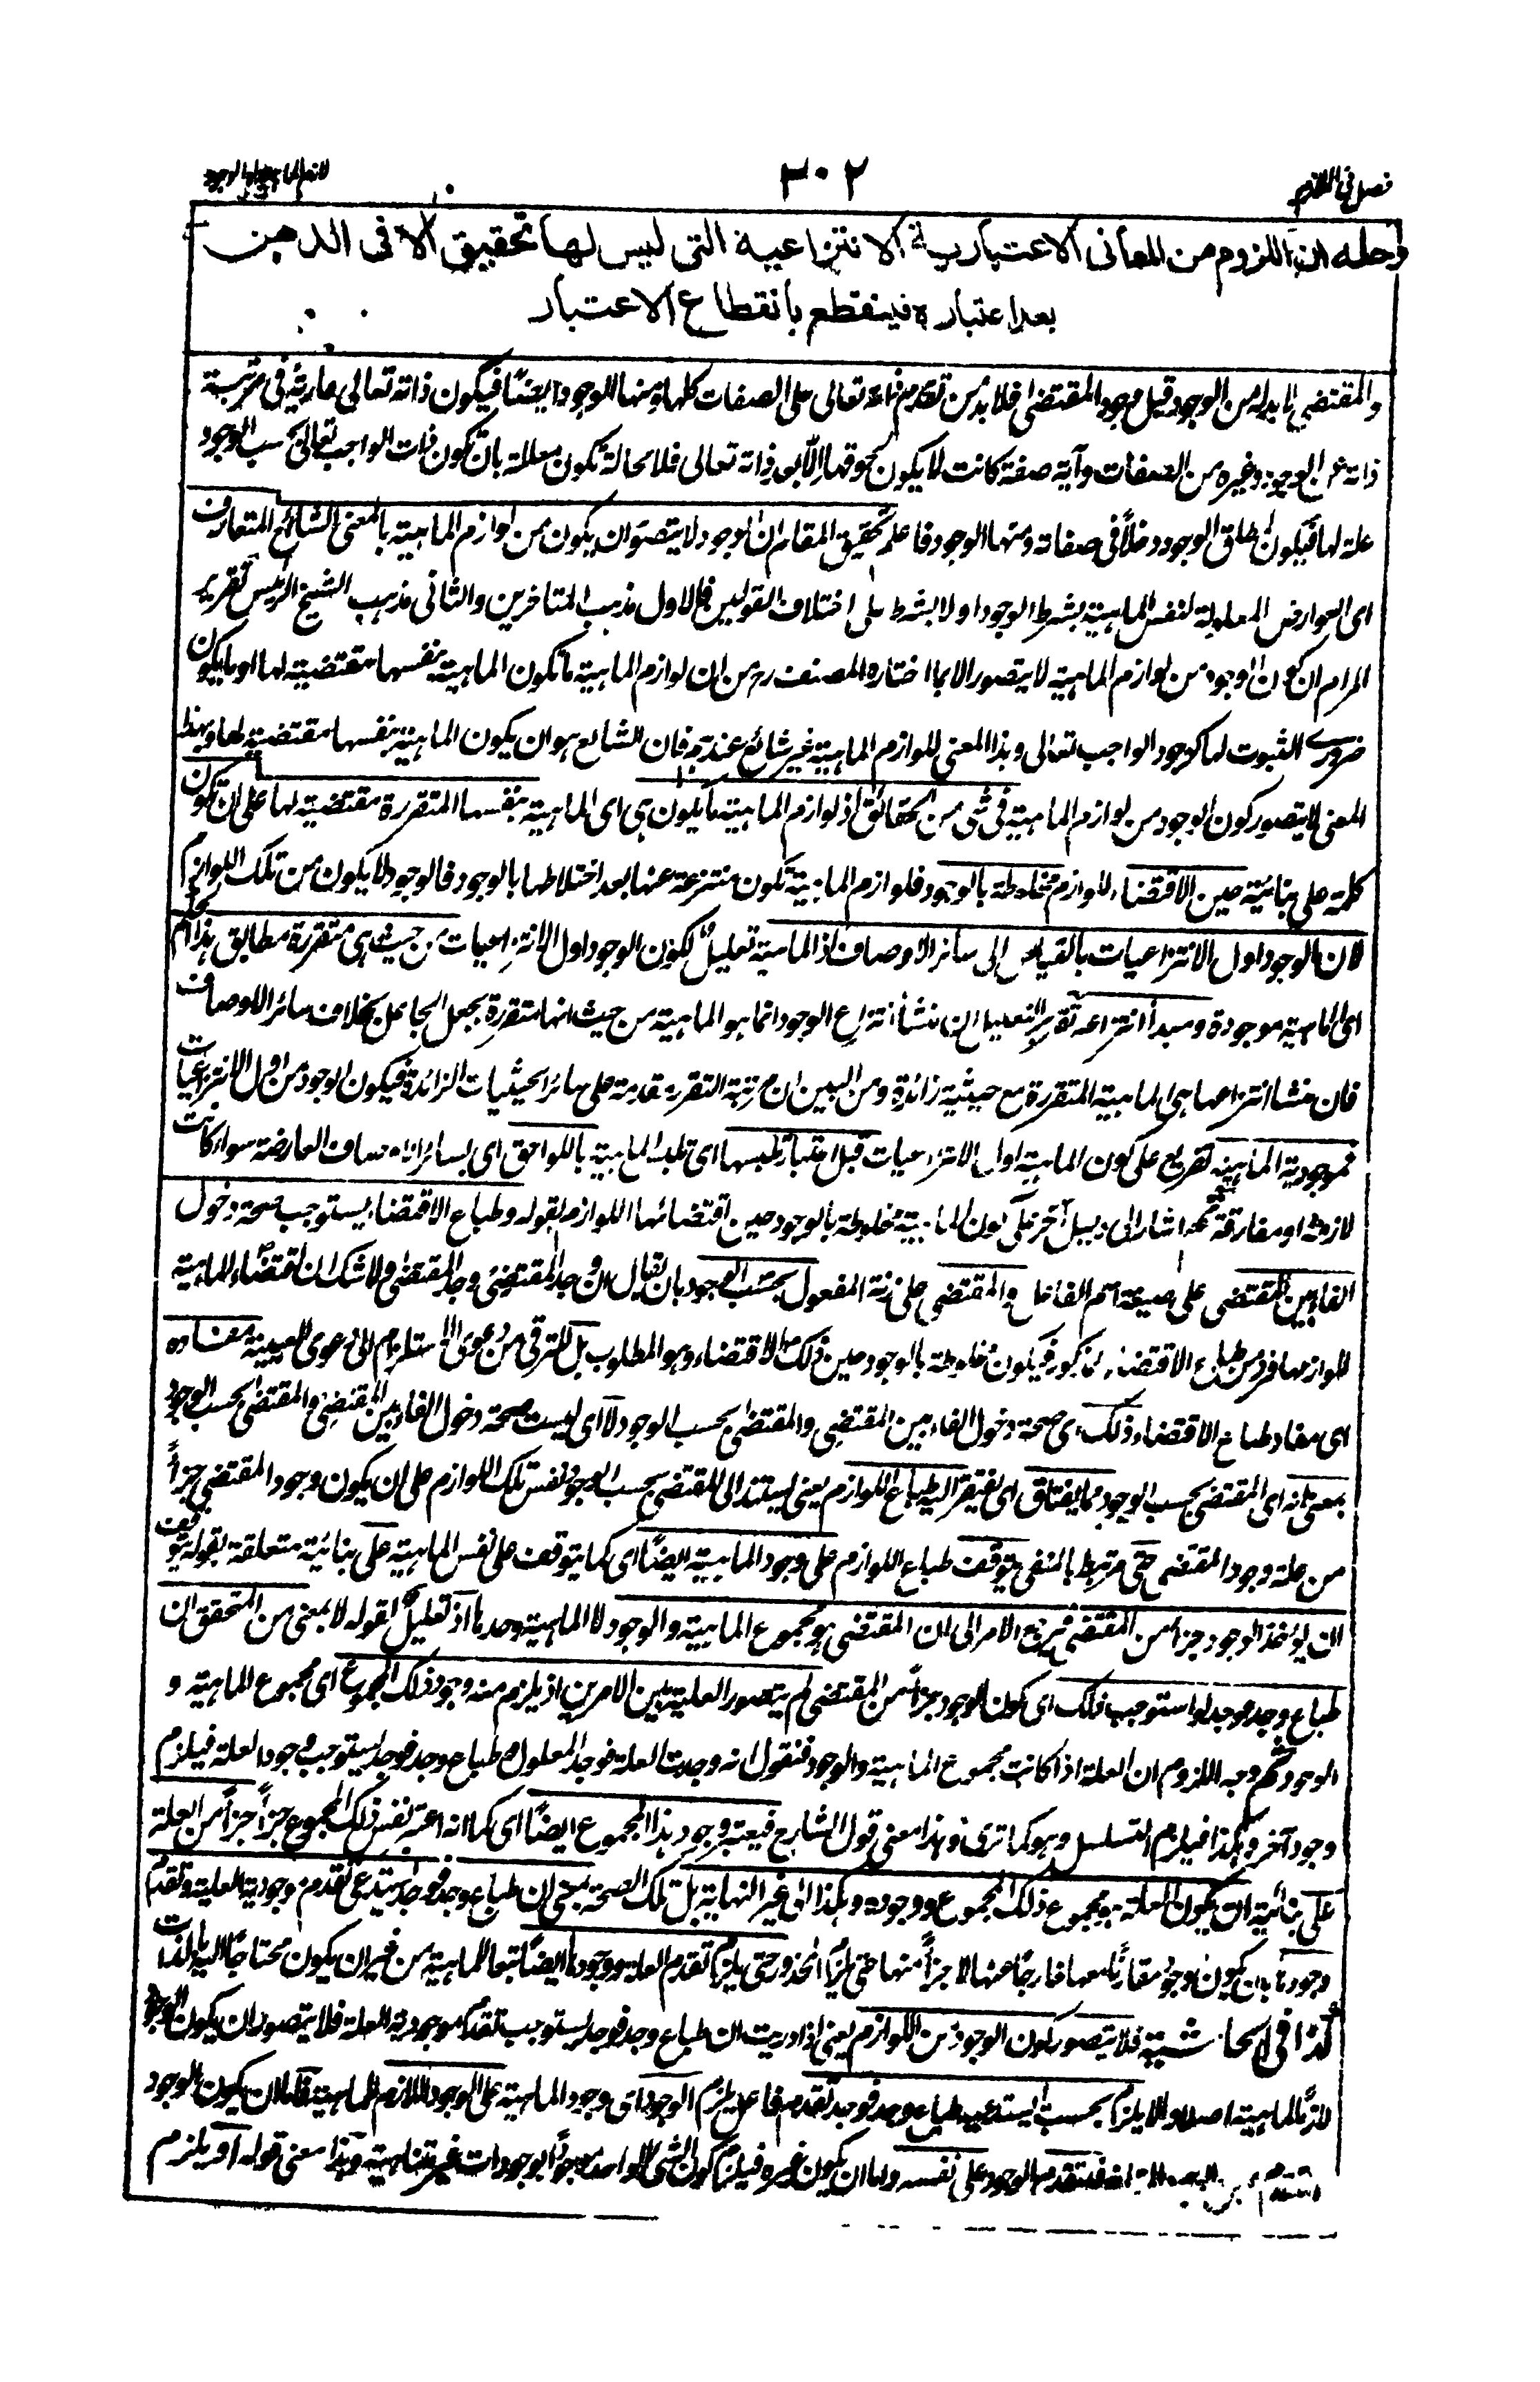 فصل في اللازم
٣٠٢
لازم الماهية والوجود
وحله ان اللزوم من المعاني الاعتبارية الانتزاعية التي ليس لها تحقيق الا في الذهن
بعد اعتباره فينقطع بانقطاع الاعتبار
والمقتضي لا بد له من الوجود قبل وجود المقتضى فلا بد من تقدم ذاته تعالى على الصفات كلها ومنها الوجود ايضا فيكون ذاته تعالى عارية في مرتبة
ذاته عن الوجود وغيره من الصفات وآية صفة كانت لا يكون لحوقها الا لأبى ذاته تعالى فلا محالة تكون معللة بان تكون ذات الواجب تعالى بحسب الوجود
علة لها فيكون اطلاق الوجود دخلا في صفاته ومنها الوجود فاعلم تحقيق المقام ان الوجود لا يتصور ان يكون من لوازم الماهية بالمعنى الشائع المتعارف
اى العوارض المعلولة لنفس الماهية بشرط الوجود او لا بشرط على اختلاف القولين فالاول مذهب المتاخرين والثاني مذهب الشيخ الرئيس تقرير
المرام ان كون الوجود من لوازم الماهية لا يتصور الا بما اختاره المصنف رح من ان لوازم الماهية ما تكون الماهية بنفسها مقتضية لها او ما يكون
ضروري الثبوت لها كوجود الواجب تعالى وهذا المعنى للوازم الماهية غير شائع عندهم فان الشائع هو ان يكون الماهية بنفسها مقتضية لها وبهذا
المعنى لا يتصور كون الوجود من لوازم الماهية في شئ من الحقائق اذ لوازم الماهية ما يكون هي اى الماهية بنفسها المتقررة مقتضية لها على ان تكون
كلمة على بنائية حين الاقتضاء للوازم مخلوطة بالوجود فلوازم الماهية تكون منتزعة عنها بعد اختلاطها بالوجود فالوجود لا يكون من تلك اللوازم
لان الوجود اول الانتزاعيات بالقياس الى سائر الاوصاف اذ الماهية تعليل لكون الوجود اول الانتزاعيات من حيث هي متقررة مطابق بهذا الحكم
اى الماهية موجودة ومبدأ انتزاعه تقرير التعليل ان منشأ انتزاع الوجود انما هو الماهية من حيث انها متقررة بجعل الجاعل بخلاف سائر الاوصاف
فان منشأ انتزاعها هي الماهية المتقررة مع حيثية زائدة ومن البين ان مرتبة التقرر مقدمة على سائر الحيثيات الزائدة فيكون الوجود من اول الانتزاعيات
فموجودية الماهية تفريع على كون الماهية اول الانتزاعيات قبل اعتبار تلبسها اى تلبس الماهية باللواحق اى بسائر الاوصاف العارضة سواء كانت
لازمة او مفارقة ثم اشار الى دليل آخر على كون الماهية مخلوطة بالوجود حين اقتضائها اللوازم بقوله وطباع الاقتضاء يستوجب صحة دخول
الفاء بين المقتضي على صيغة اسم الفاعل والمقتضى على زنة المفعول بحسب الوجود بان يقال وجد المقتضي وجد المقتضى ولا شك ان اقتضاء الماهية
للوازمها فرد من طباع الاقتضاء المذكور فيكون مخلوطة بالوجود حين ذلك الاقتضاء وهو المطلوب بل للترقي من دعوى الاستلزام الى دعوى العينية مفاده
اى مفاد طباع الاقتضاء ذلك اى صحة دخول الفاء بين المقتضي والمقتضى بحسب الوجود لا اى ليست صحة دخول الفاء بين المقتضي والمقتضى بحسب الوجود
بمعنى انه اى المقتضي بحسب الوجود مما يفتاق اى يفتقر اليه طباع اللوازم يعني يستند الى المقتضي بحسب الوجود نفس تلك اللوازم على ان يكون وجود المقتضي جزأ
من علة وجود المقتضى حتى مرتبط بالمنفي يتوقف طباع اللوازم على وجود الماهية ايضا اى كما يتوقف على نفس الماهية على بنائية متعلقة بقوله يتوقف
ان يؤخذ الوجود جزأ من المقتضي فيرجع الامر الى ان المقتضي هو مجموع الماهية والوجود لا الماهية وحدها اذ تعليل لقوله لا بمعنى من المتحقق ان
طباع وجد فوجد لو استوجب ذلك اى كون الوجود جزأ من المقتضي لم يتصور العلية بين الامرين اذ يلزم منه وجود ذلك المجموع اى مجموع الماهية و
الوجود ثم وجه اللزوم ان العلة اذا كانت مجموع الماهية والوجود فنقول انه وجدت العلة فوجد المعلول طباع وجد فوجد يستوجب وجود العلة فيلزم
وجود آخر وهكذا فيلزم التسلسل وهو كما ترى وهذا معنى قول الشارح فيعتبر وجود هذا المجموع ايضا اى كما انه اعتبر نفس ذلك المجموع جزأ جزأ من العلة
على بنائية ان يكون العلة هو مجموع ذلك المجموع ووجوده وهكذا الى غير النهاية بل تلك الصحة بمعنى ان طباع وجد فوجد يستدعي تقدم موجودية العلة وتقدم
وجودها بان يكون وجوده مقارنا معها خارجا عنها لا جزأ منها حتى يلزم المحذور حتى يلزم تقدم العلة ووجودها ايضا تبعا للماهية من غير ان يكون محتاجا اليه بالذات
كذا في الحاشية فلا يتصور كون الوجود من اللوازم يعني اذا دريت ان طباع وجد فوجد يستوجب تقدم موجودية العلة فلا يتصور ان يكون الوجود
لازما للماهية اصلا والا يلزم بحسب استدعيه طباع وجد فوجد تقدمه فاعل يلزم الوجود اى وجود الماهية على الوجود اللازم للماهية فاما ان يكون الوجود
المتقدم عين الوجود اللازم فيتقدم الوجود على نفسه واما ان يكون غيره فيلزم كون الشئ الواحد موجودا بوجودات غير متناهية وهذا معنى قوله او يلزم